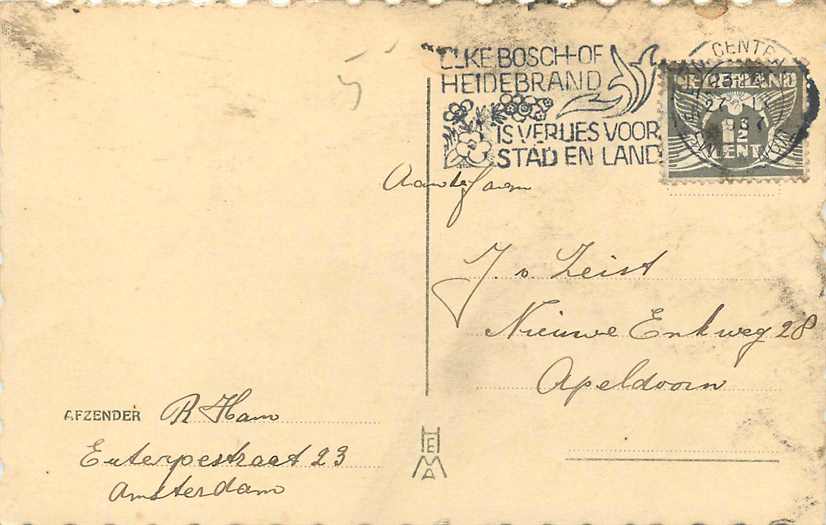 ELKE BOSCH- OF
HEIDEBRAND
IS VERLIES VOOR
STAD EN LAND
NEDERLAND
1½
CENT
Aan de fam
J. v. Zeist
Nieuwe Enkweg 28
Apeldoorn
AFZENDER R Ham
Euterpestraat 23
Amsterdam
HEMA